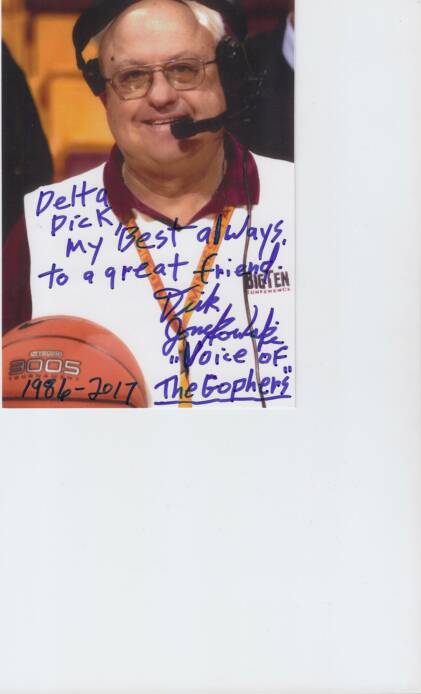 Delta
Dick,
My Best always,
to a great friend.
BIGTEN
CONFERENCE
Dick
Jonckowski
"Voice of
The Gophers"
3005
1986-2017